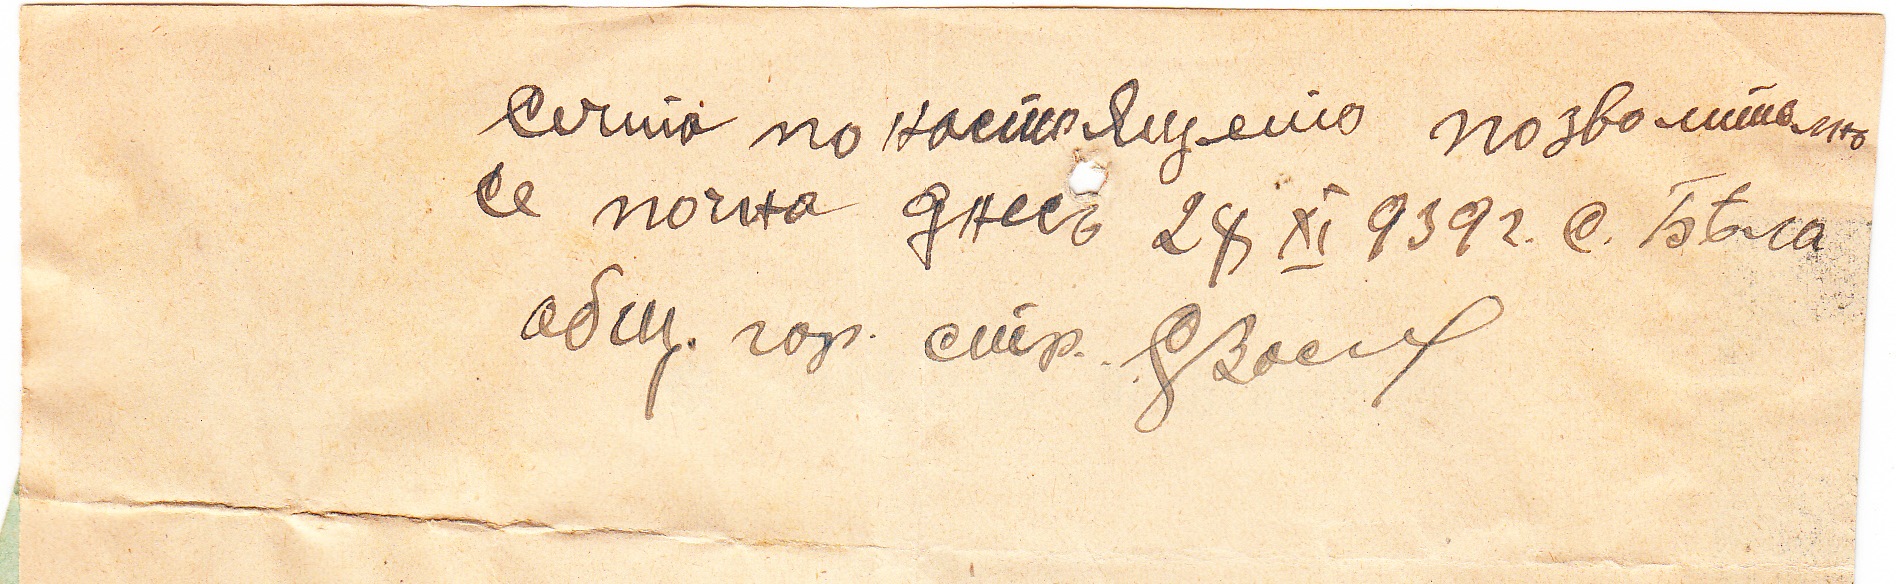 Сечта по настоящето позволително
се почна днесъ 28 XI 939 г. с. Бѣла
общ. гор. стр.